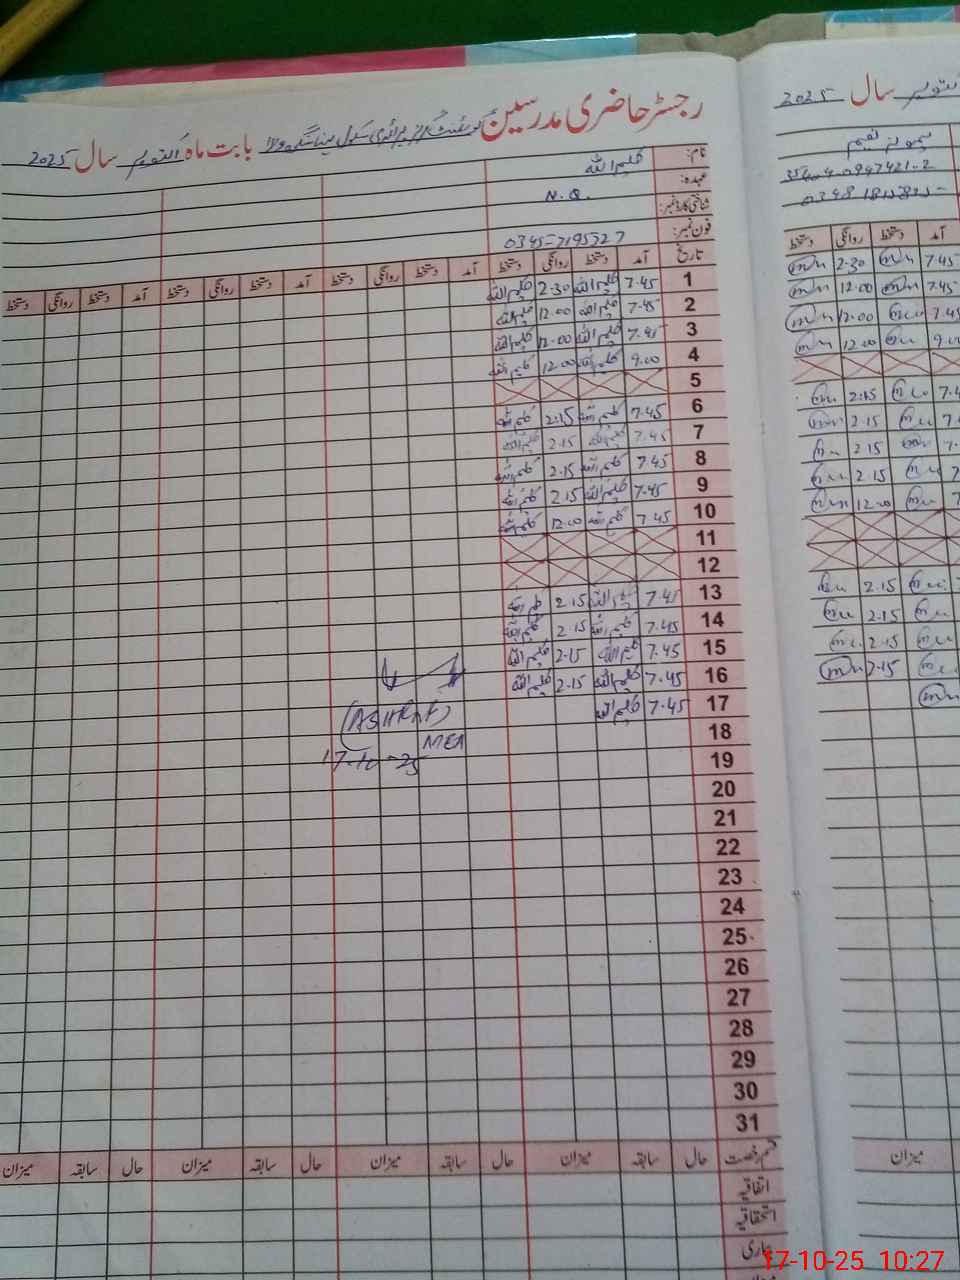 رجسٹر حاضری مدرسین گورنمنٹ گرلز پرائمری سکول بابت ماہ اکتوبر سال 2025
نام: کلیم اللہ
عہدہ: N.Q.
شناختی کارڈ نمبر:
فون نمبر: 0345-7195727
تاریخ آمد دستخط روانگی دستخط آمد دستخط روانگی دستخط آمد دستخط روانگی دستخط آمد دستخط روانگی دستخط
1 7.45 کلیم اللہ 2.30 کلیم اللہ
2 7.45 کلیم اللہ 12.00 کلیم اللہ
3 7.45 کلیم اللہ 12.00 کلیم اللہ
4 9.00 کلیم اللہ 12.00 کلیم اللہ
5
6 7.45 کلیم اللہ 2.15 کلیم اللہ
7 7.45 کلیم اللہ 2.15 کلیم اللہ
8 7.45 کلیم اللہ 2.15 کلیم اللہ
9 7.45 کلیم اللہ 2.15 کلیم اللہ
10 7.45 کلیم اللہ 12.00 کلیم اللہ
11
12
13 7.45 کلیم اللہ 2.15 کلیم اللہ
14 7.45 کلیم اللہ 2.15 کلیم اللہ
15 7.45 کلیم اللہ 2.15 کلیم اللہ
16 7.45 کلیم اللہ 2.15 کلیم اللہ
17 7.45 کلیم اللہ
(ASHRAF)
MEA
17-10-25
18
19
20
21
22
23
24
25
26
27
28
29
30
31
قسم رخصت حال سابقہ میزان حال سابقہ میزان حال سابقہ میزان حال سابقہ میزان
اتفاقیہ
استحقاقیہ
بیماری
اکتوبر سال 2025
نعیم
آمد دستخط روانگی دستخط
7.45 2.30
7.45 12.00
7.45 12.00
9.00 12.00
2.15
2.15
2.15
2.15
12.00
2.15
2.15
2.15
2.15
میزان
17-10-25 10:27